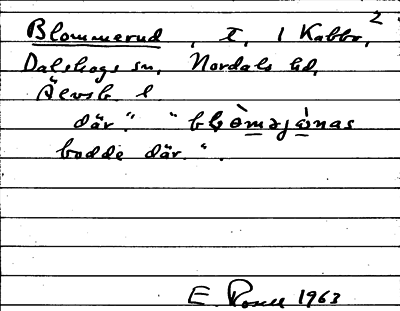 2
Blommerud, t, 1 Kabbo,
Dalskogs sn, Nordals hd,
Älvsb. l
där." "
bodde där.".
E. Rosell 1963